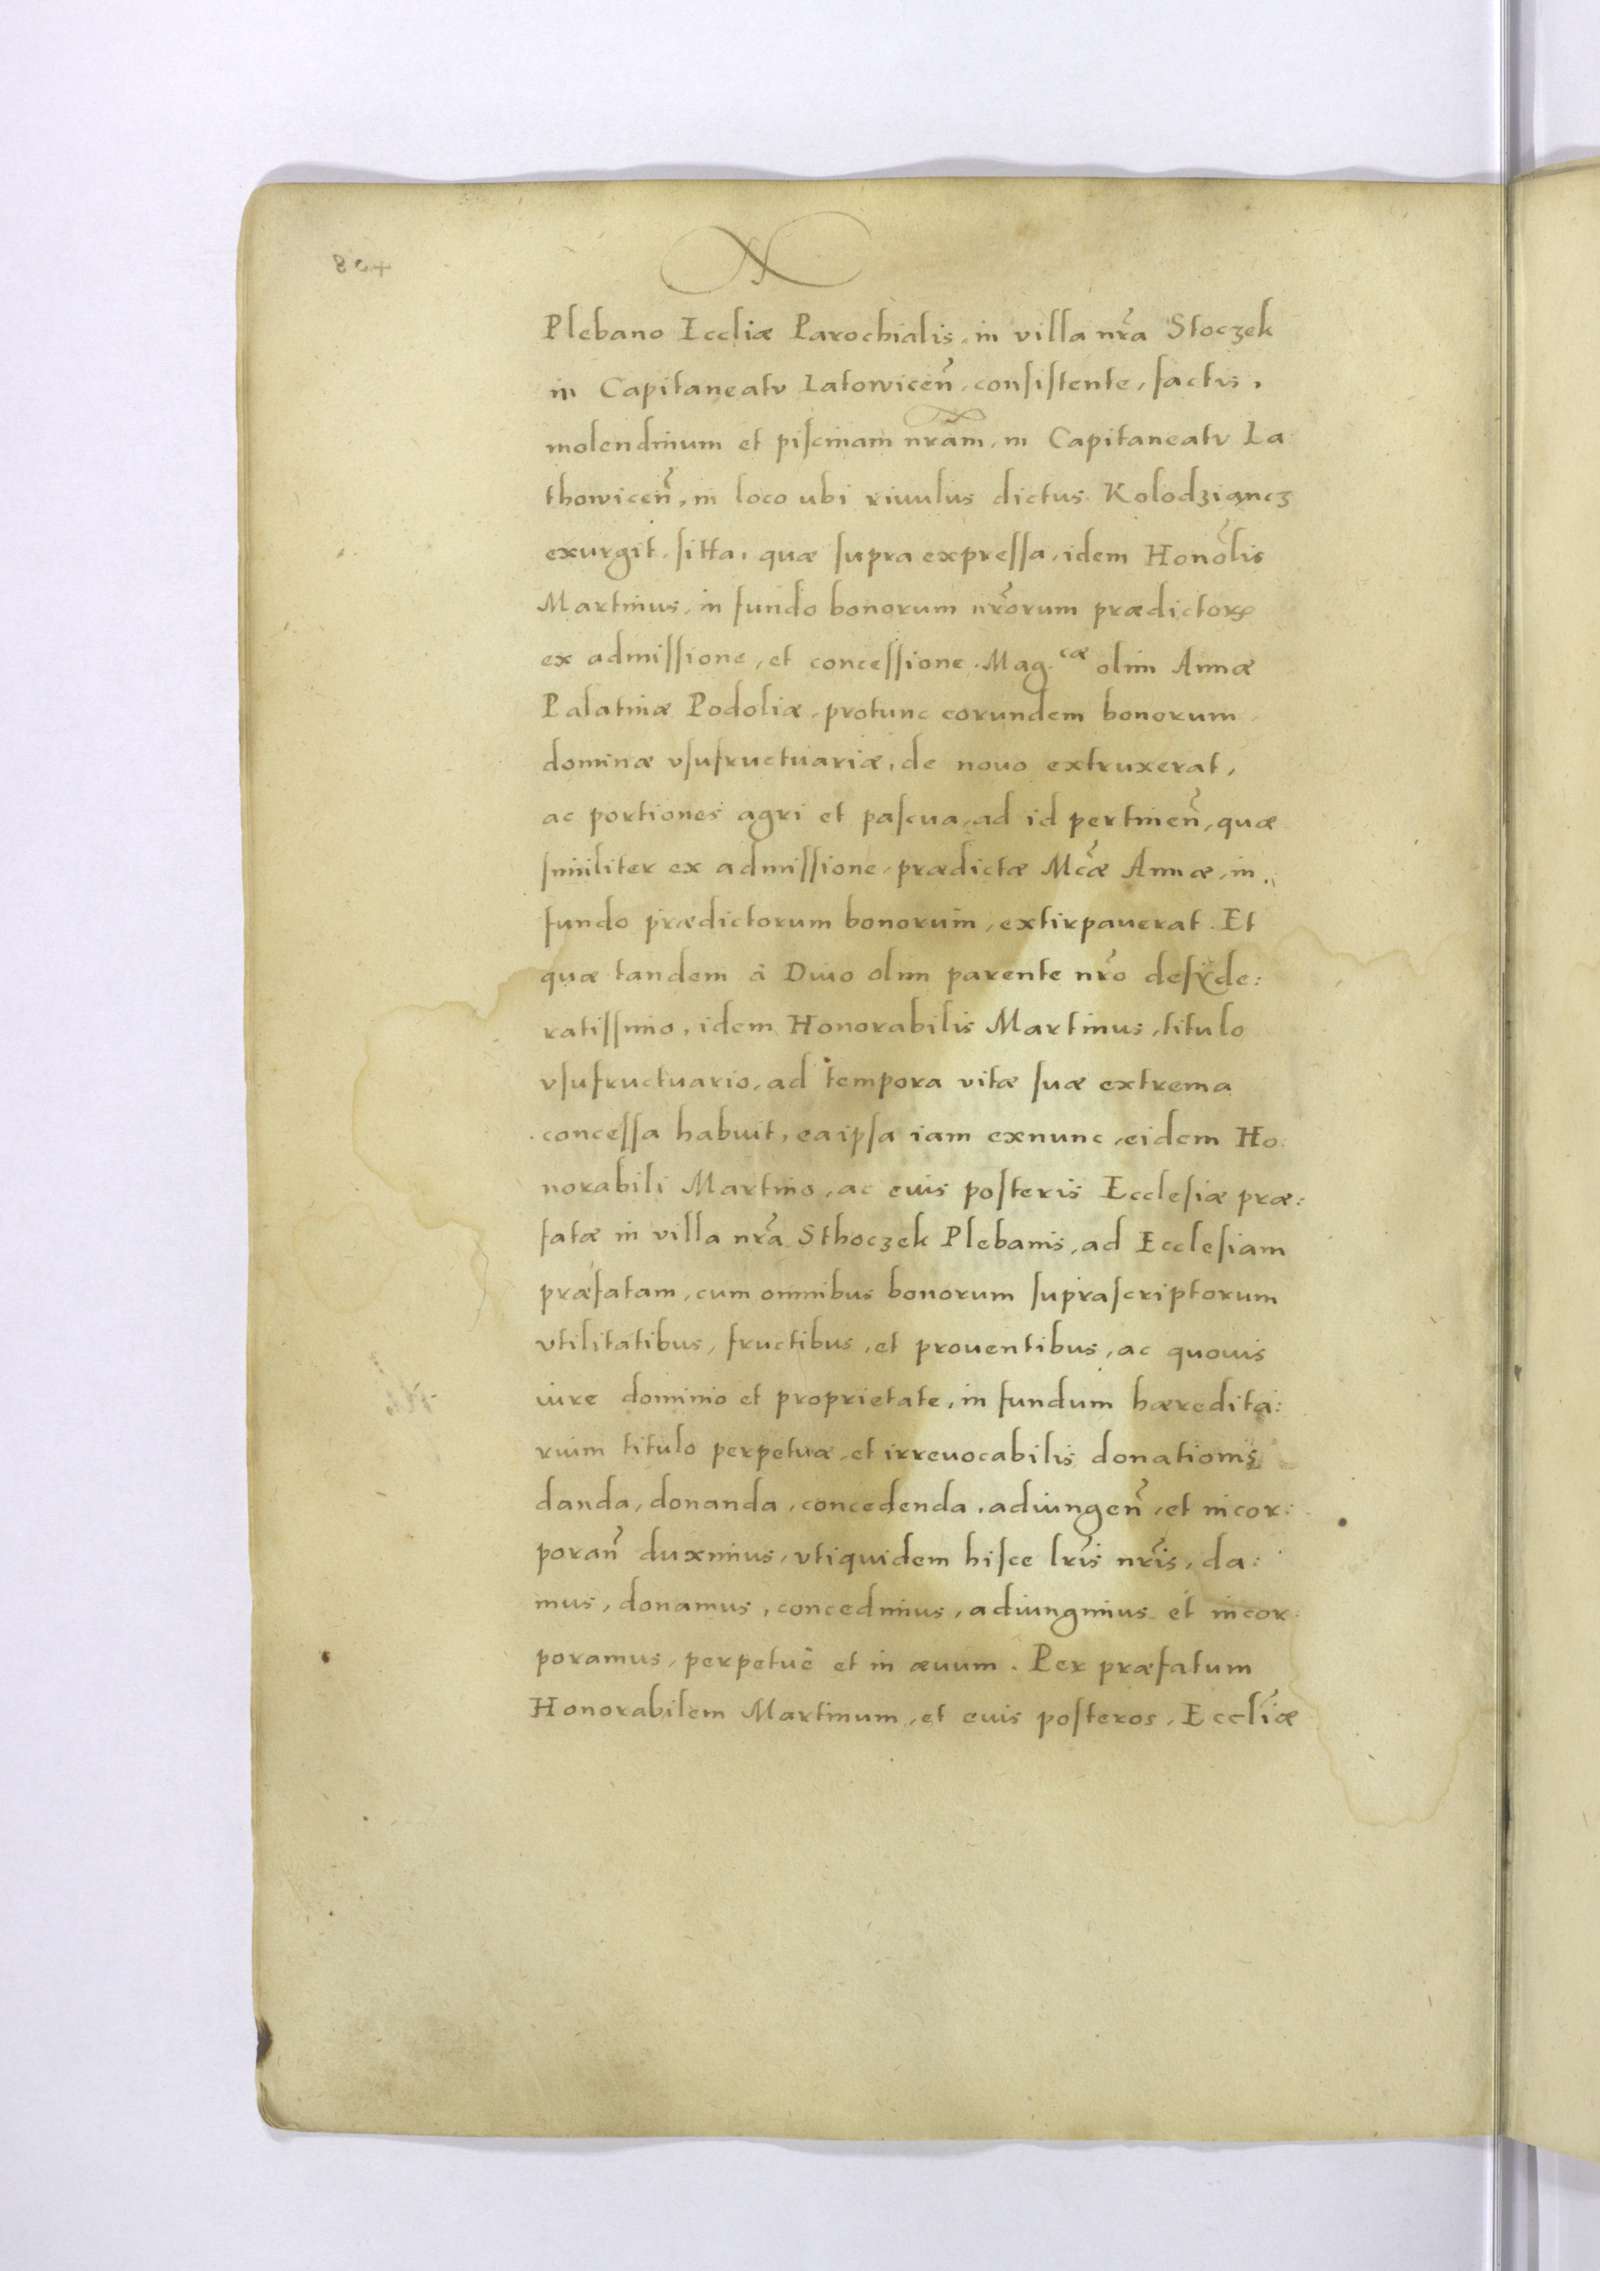 Plebano Eccliæ Parochialis, in villa nr̃a Stoczek
in Capitaneatu Latowiceñ, consistente, factis,
molendinum et piscinam nrãm, in Capitaneatu La
thowiceñ, in loco ubi riuulus dictus Kolodziancz
exurgit, sitta, quæ supra expressa, idem Honõlis
Martinus, in fundo bonorum nr̃orum prædictorꝝ
ex admissione, et concessione Mag.cæ olim Annæ
Palatinæ Podoliæ, protunc eorundem bonorum
dominæ vsufructuariæ, de nouo extruxerat,
ac portiones agri et pascua, ad id pertineñ, quæ
similiter ex admissione, prædictæ Mc̃æ Annæ, in
fundo prædictorum bonorum, extirpauerat. Et
quæ tandem à Diuo olim parente nr̃o desyde:
ratissimo, idem Honorabilis Martinus, titulo
vsufructuario, ad tempora vitæ suæ extrema
concessa habuit, eaipsa iam exnunc, eidem Ho:
norabili Martino, ac euis posteris Ecclesiæ præ:
fatæ in villa nr̃a Sthoczek Plebanis, ad Ecclesiam
præfatam, cum omnibus bonorum suprascriptorum
vtilitatibus, fructibus, et prouentibus, ac quouis
iure dominio et proprietate, in fundum hæredita:
rium titulo perpetuæ, et irreuocabilis donationis
danda, donanda, concedenda, adiungeñ, et incor:
porañ duximus, vtiquidem hisce lr̃is nr̃is, da:
mus, donamus, concedimus, adiungimus et incor:
poramus, perpetuè et in æuum. Per præfatum
Honorabilem Martinum, et euis posteros, Eccl̃iæ